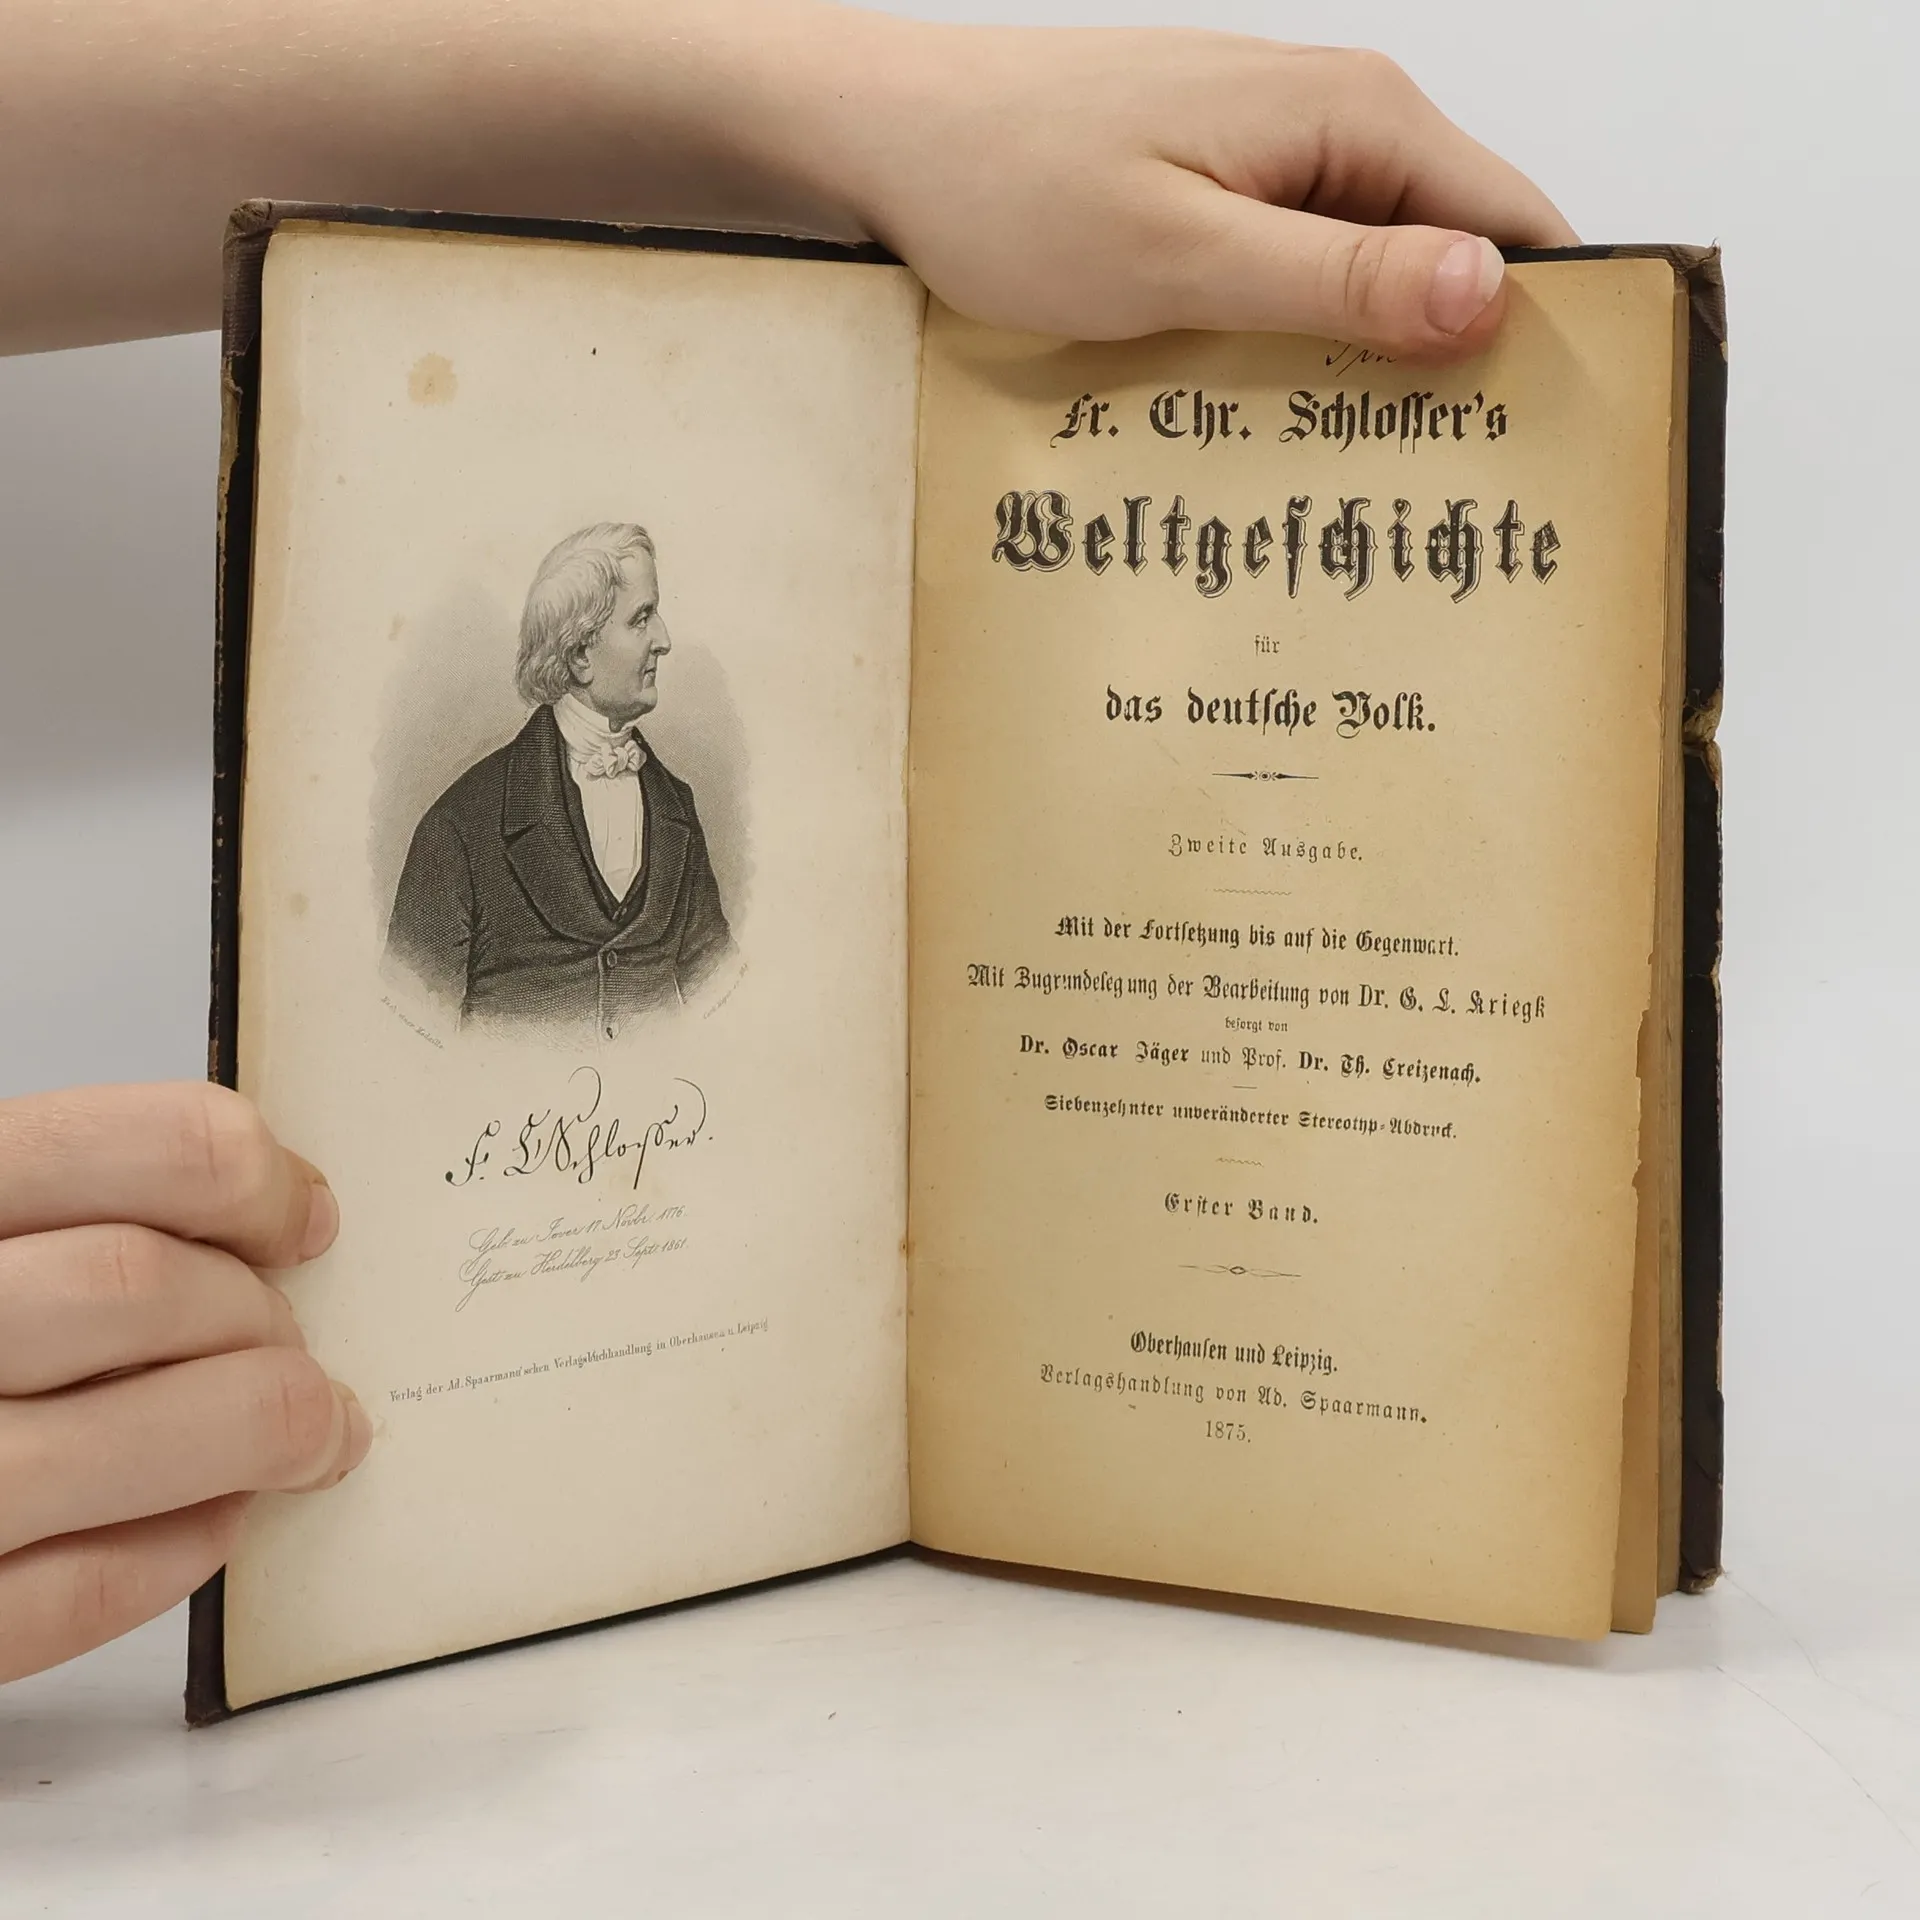 F. C. Schlosser.
Geb. zu Jever 17. Novbr. 1776.
Gest. zu Heidelberg 23. Sept. 1861.
Verlag der Ad. Spaarmann'schen Verlagsbuchhandlung in Oberhausen u. Leipzig
Fr. Chr. Schloſſer's
Weltgeſchichte
für
das deutſche Volk.
Zweite Ausgabe.
Mit der Fortſetzung bis auf die Gegenwart.
Mit Zugrundelegung der Bearbeitung von Dr. G. L. Kriegk
beſorgt von
Dr. Oscar Jäger und Prof. Dr. Th. Creizenach.
Siebenzehnter unveränderter Stereotyp-Abdruck.
Erſter Band.
Oberhauſen und Leipzig.
Verlagshandlung von Ad. Spaarmann.
1875.